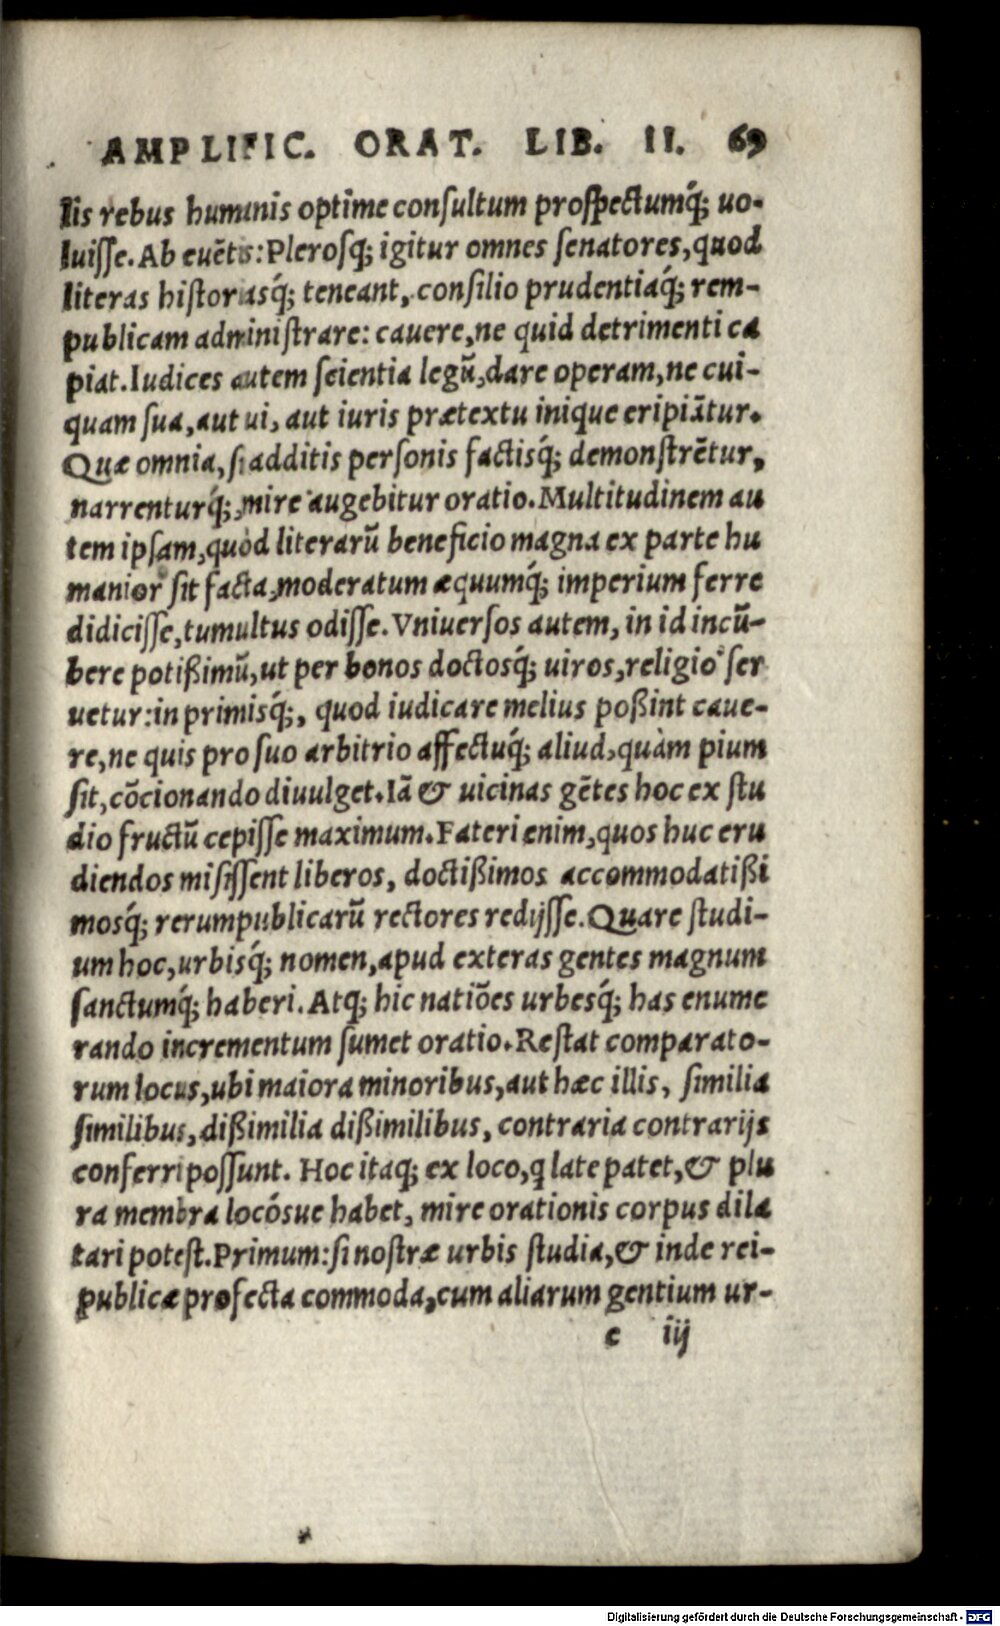 AMPLIFIC. ORAT. LIB. II. 69
lis rebus humanis optime conſultum proſpectumq́; uo-
luiſſe. Ab euẽtis: Pleroſq; igitur omnes ſenatores, quod
literas hiſtoriasq́; teneant, conſilio prudentiaq́; rem-
publicam adminiſtrare: cauere, ne quid detrimenti ca
piat. Iudices autem ſcientia legũ, dare operam, ne cui-
quam ſua, aut ui, aut iuris prætextu inique eripiãtur.
Quæ omnia, ſi additis perſonis factisq́; demonſtrẽtur,
narrenturq́;, mire augebitur oratio. Multitudinem au
tem ipſam, quòd literarũ beneficio magna ex parte hu
manior ſit facta, moderatum æquumq́; imperium ferre
didiciſſe, tumultus odiſſe. Vniuerſos autem, in id incũ-
bere potißimũ, ut per bonos doctosq́; uiros, religio ſer
uetur: in primisq́;, quod iudicare melius poßint caue-
re, ne quis pro ſuo arbitrio affectuq́; aliud, quàm pium
ſit, cõcionando diuulget. Iã & uicinas gẽtes hoc ex ſtu
dio fructũ cepiſſe maximum. Fateri enim, quos huc eru
diendos miſiſſent liberos, doctißimos accommodatißi
mosq́; rerumpublicarũ rectores redijſſe. Quare ſtudi-
um hoc, urbisq́; nomen, apud exteras gentes magnum
ſanctumq́; haberi. Atq; hic natiões urbesq́; has enume
rando incrementum ſumet oratio. Reſtat comparato-
rum locus, ubi maiora minoribus, aut hæc illis, ſimilia
ſimilibus, dißimilia dißimilibus, contraria contrarijs
conferri poſſunt. Hoc itaq; ex loco, q late patet, & plu
ra membra locósue habet, mire orationis corpus dila
tari poteſt. Primum: ſi noſtræ urbis ſtudia, & inde rei-
publicæ profecta commoda, cum aliarum gentium ur-
e iij
Digitalisierung gefördert durch die Deutsche Forschungsgemeinschaft - DFG